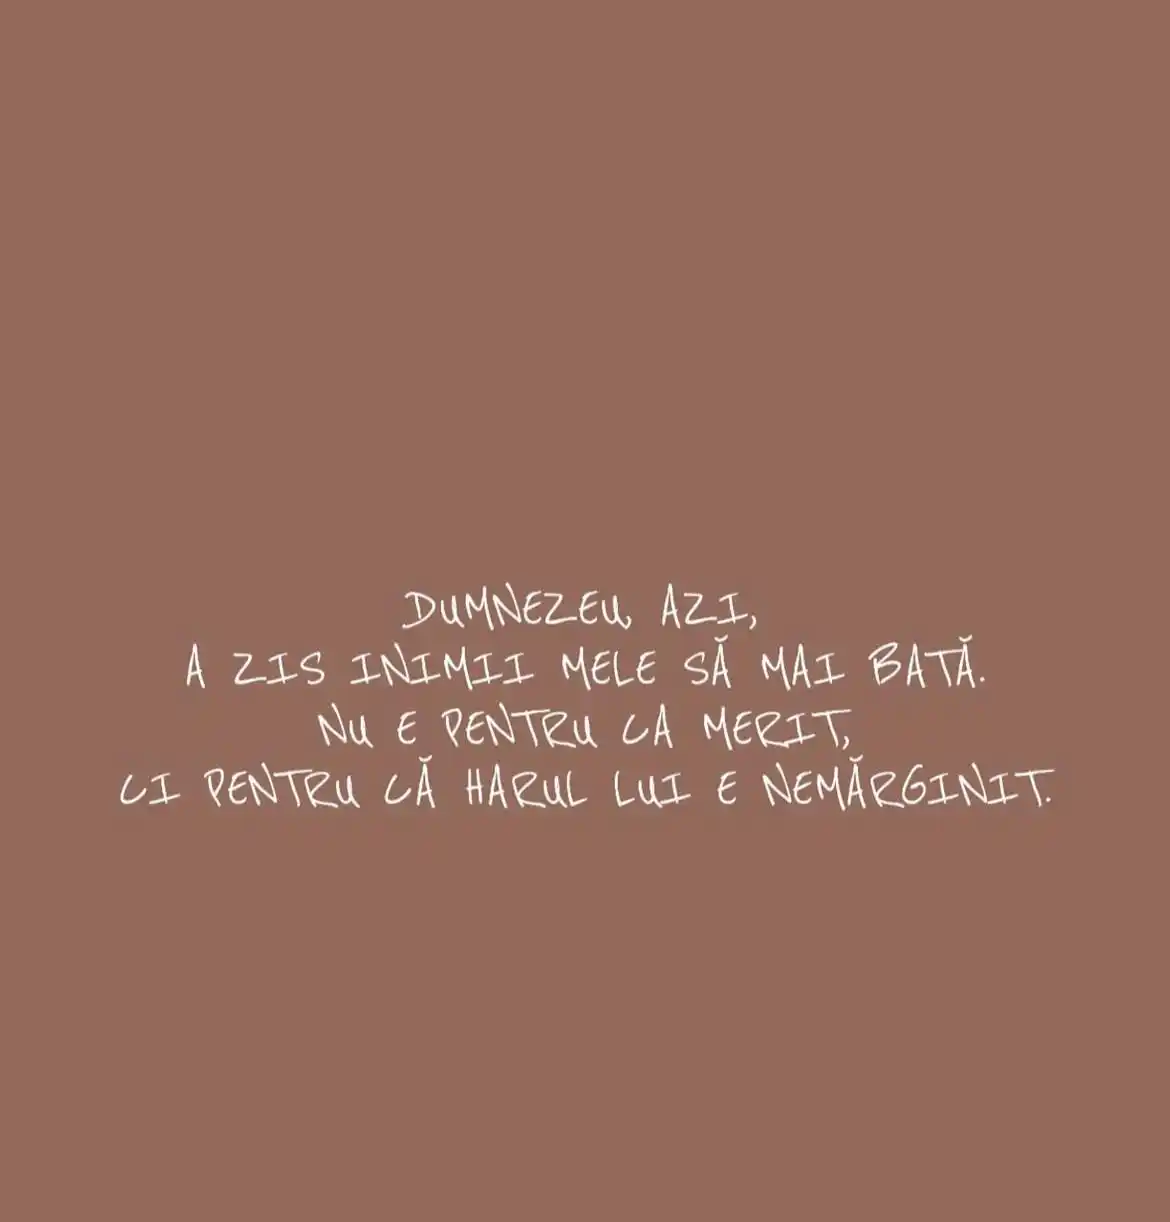 DUMNEZEU, AZI,
A ZIS INIMII MELE SĂ MAI BATĂ.
NU E PENTRU CA MERIT,
CI PENTRU CĂ HARUL LUI E NEMĂRGINIT.